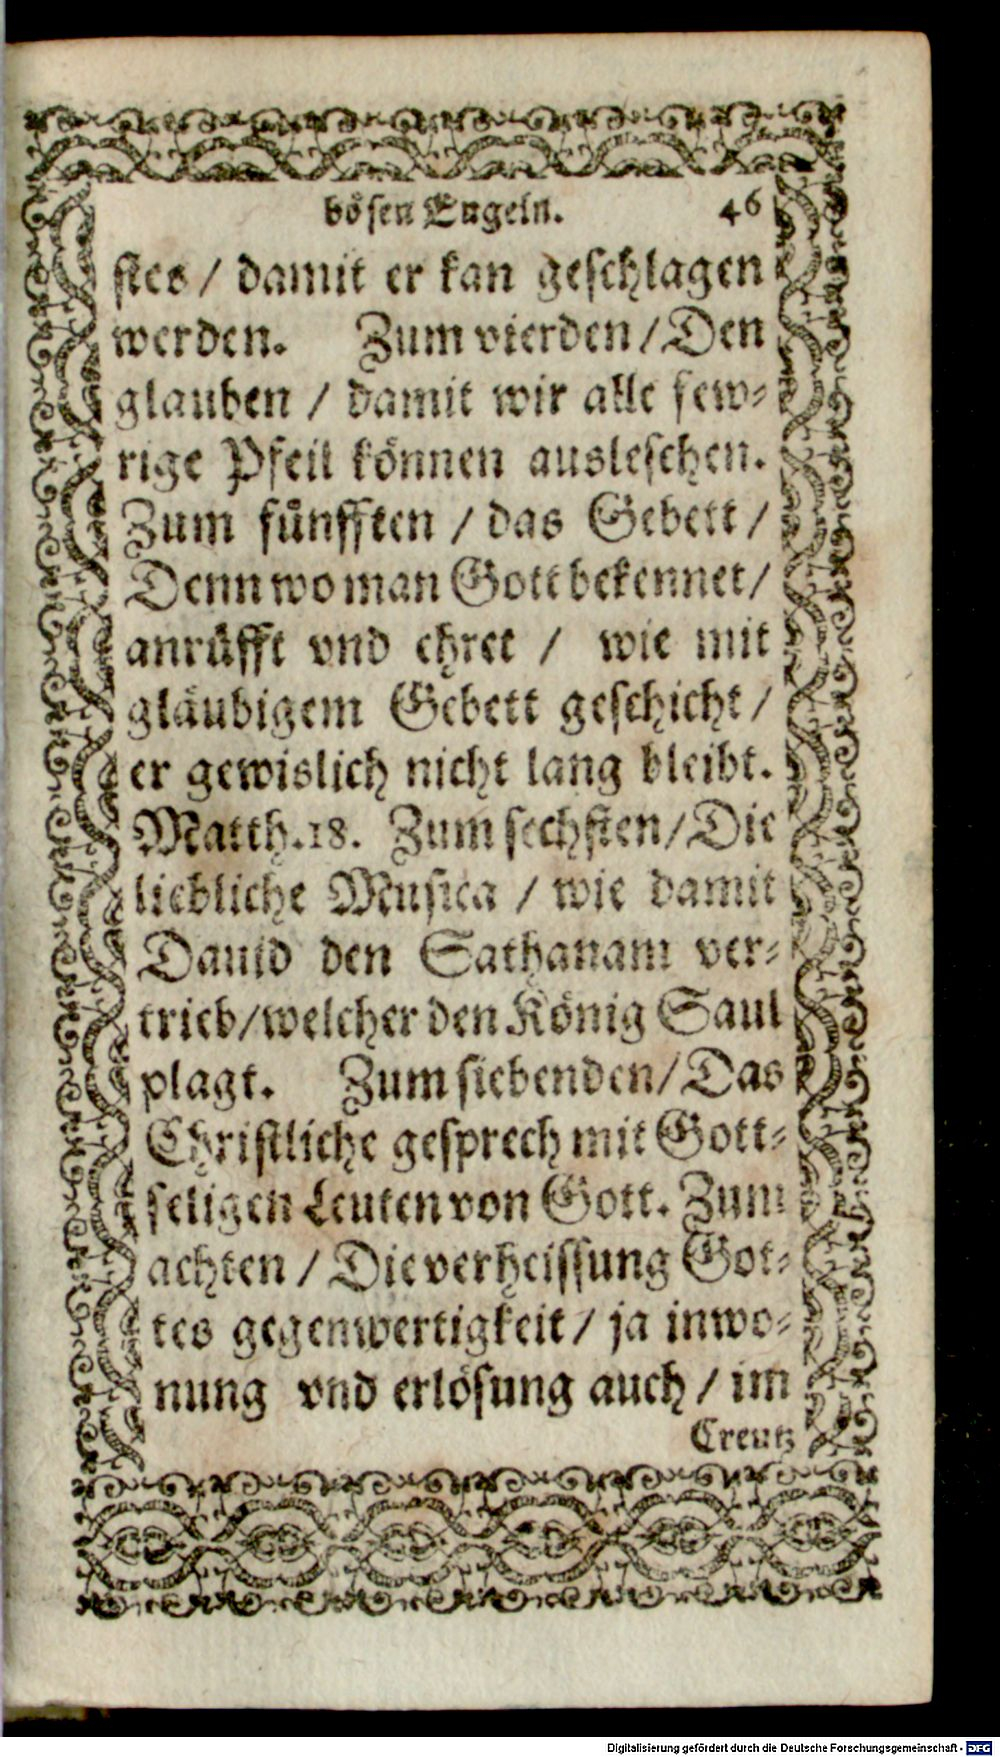 bösen Engeln. 46
stes / damit er kan geschlagen
werden. Zum vierden / Den
glauben / damit wir alle few-
rige Pfeil können ausleschen.
Zum fünfften / das Gebett /
Denn wo man Gott bekennet /
anrüfft vnd ehret / wie mit
gläubigem Gebett geschicht /
er gewislich nicht lang bleibt.
Matth. 18. Zum sechsten / Die
liebliche Musica / wie damit
Dauid den Sathanam ver-
trieb / welcher den König Saul
plagt. Zum siebenden / Das
Christliche gesprech mit Gott-
seligen Leuten von Gott. Zum
achten / Die verheissung Got-
tes gegenwertigkeit / ja inwo-
nung vnd erlösung auch / im
Creutz
Digitalisierung gefördert durch die Deutsche Forschungsgemeinschaft - DFG